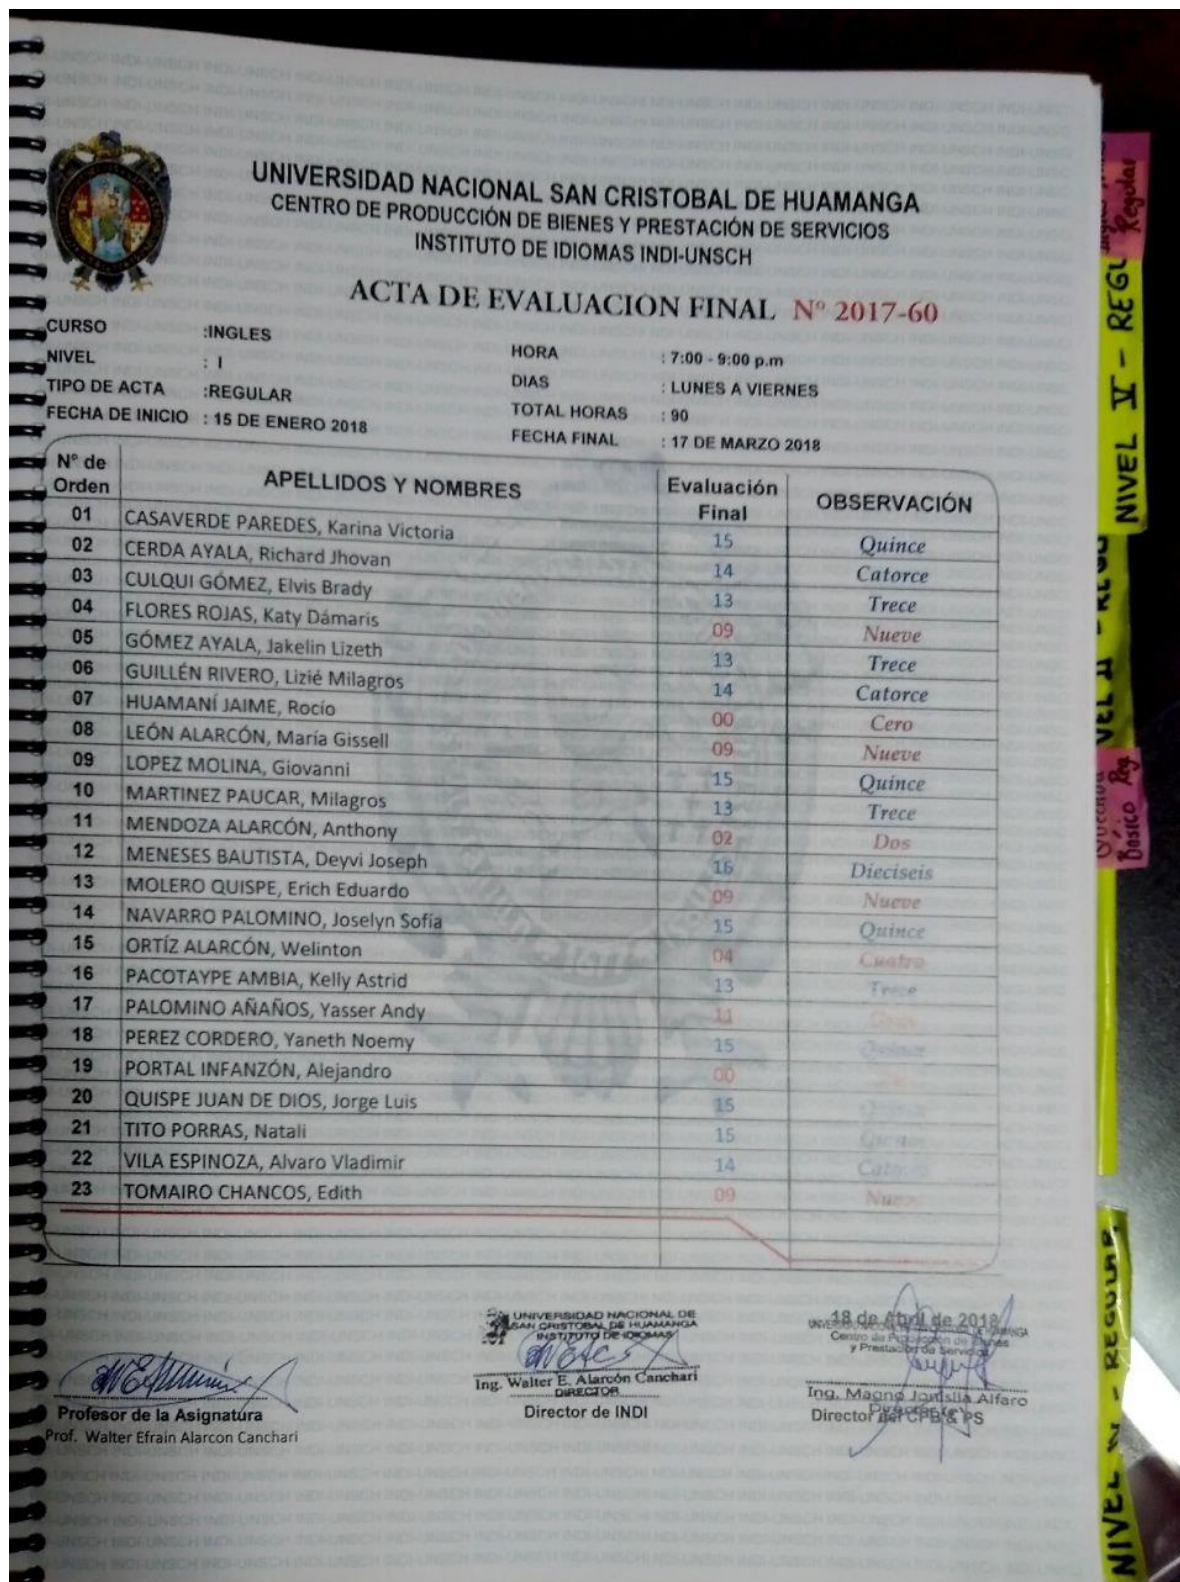 UNIVERSIDAD NACIONAL SAN CRISTOBAL DE HUAMANGA
CENTRO DE PRODUCCIÓN DE BIENES Y PRESTACIÓN DE SERVICIOS
INSTITUTO DE IDIOMAS INDI-UNSCH
ACTA DE EVALUACION FINAL Nº 2017-60
CURSO :INGLES
NIVEL : I
TIPO DE ACTA :REGULAR
FECHA DE INICIO : 15 DE ENERO 2018
HORA : 7:00 - 9:00 p.m
DIAS : LUNES A VIERNES
TOTAL HORAS : 90
FECHA FINAL : 17 DE MARZO 2018
Nº de Orden APELLIDOS Y NOMBRES Evaluación Final OBSERVACIÓN
01 CASAVERDE PAREDES, Karina Victoria 15 Quince
02 CERDA AYALA, Richard Jhovan 14 Catorce
03 CULQUI GÓMEZ, Elvis Brady 13 Trece
04 FLORES ROJAS, Katy Dámaris 09 Nueve
05 GÓMEZ AYALA, Jakelin Lizeth 13 Trece
06 GUILLÉN RIVERO, Lizié Milagros 14 Catorce
07 HUAMANÍ JAIME, Rocío 00 Cero
08 LEÓN ALARCÓN, María Gissell 09 Nueve
09 LOPEZ MOLINA, Giovanni 15 Quince
10 MARTINEZ PAUCAR, Milagros 13 Trece
11 MENDOZA ALARCÓN, Anthony 02 Dos
12 MENESES BAUTISTA, Deyvi Joseph 16 Dieciseis
13 MOLERO QUISPE, Erich Eduardo 09 Nueve
14 NAVARRO PALOMINO, Joselyn Sofía 15 Quince
15 ORTÍZ ALARCÓN, Welinton 04 Cuatro
16 PACOTAYPE AMBIA, Kelly Astrid 13 Trece
17 PALOMINO AÑAÑOS, Yasser Andy 11
18 PEREZ CORDERO, Yaneth Noemy 15 Quince
19 PORTAL INFANZÓN, Alejandro 00
20 QUISPE JUAN DE DIOS, Jorge Luis 15
21 TITO PORRAS, Natali 15
22 VILA ESPINOZA, Alvaro Vladimir 14
23 TOMAIRO CHANCOS, Edith 09 Nueve
UNIVERSIDAD NACIONAL DE
SAN CRISTOBAL DE HUAMANGA
INSTITUTO DE IDIOMAS
Ing. Walter E. Alarcón Canchari
DIRECTOR
Director de INDI
18 de Abril de 2018
Centro de Producción de Bienes
y Prestación de Servicios
Ing. Magno Alfaro
Director del CPB & PS
Profesor de la Asignatura
Prof. Walter Efrain Alarcon Canchari
Regular
NIVEL V - REGU
Básico Reg
NIVEL IV - REGULAR